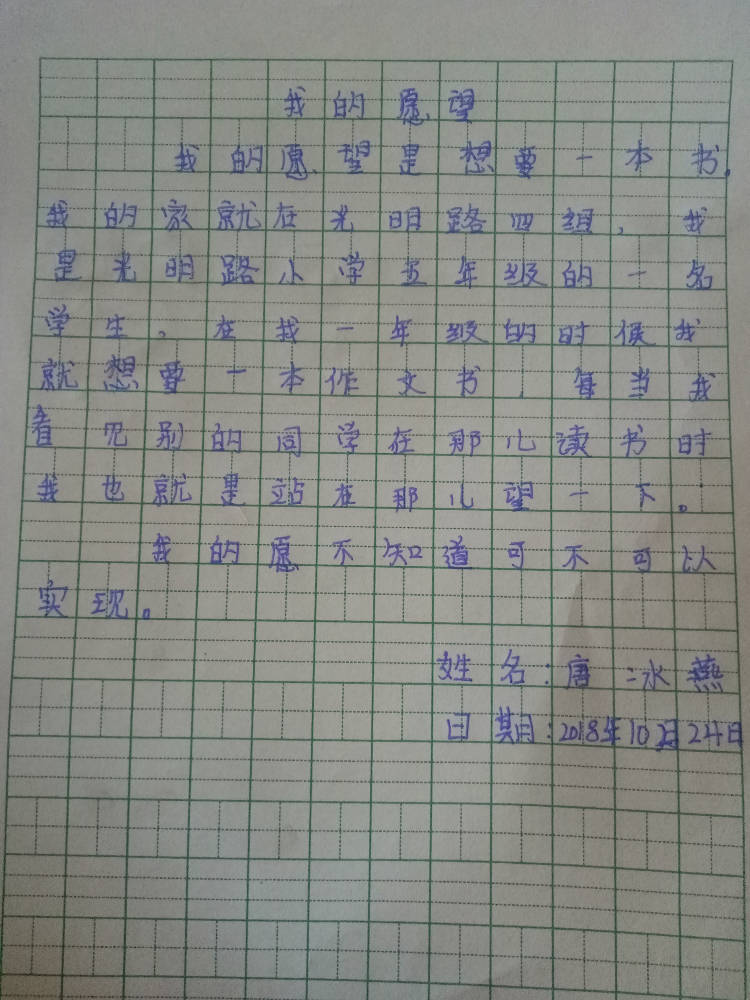 我的愿望
我的愿望是想要一本书。
我的家就在光明路四组，我
是光明路小学五年级的一名
学生。在我一年级的时候我
就想要一本作文书．每当我
看见别的同学在那儿读书时
我也就是站在那儿望一下。
我的愿不知道可不可以
实现。
姓名：唐冰燕
日期：2018年10月24日